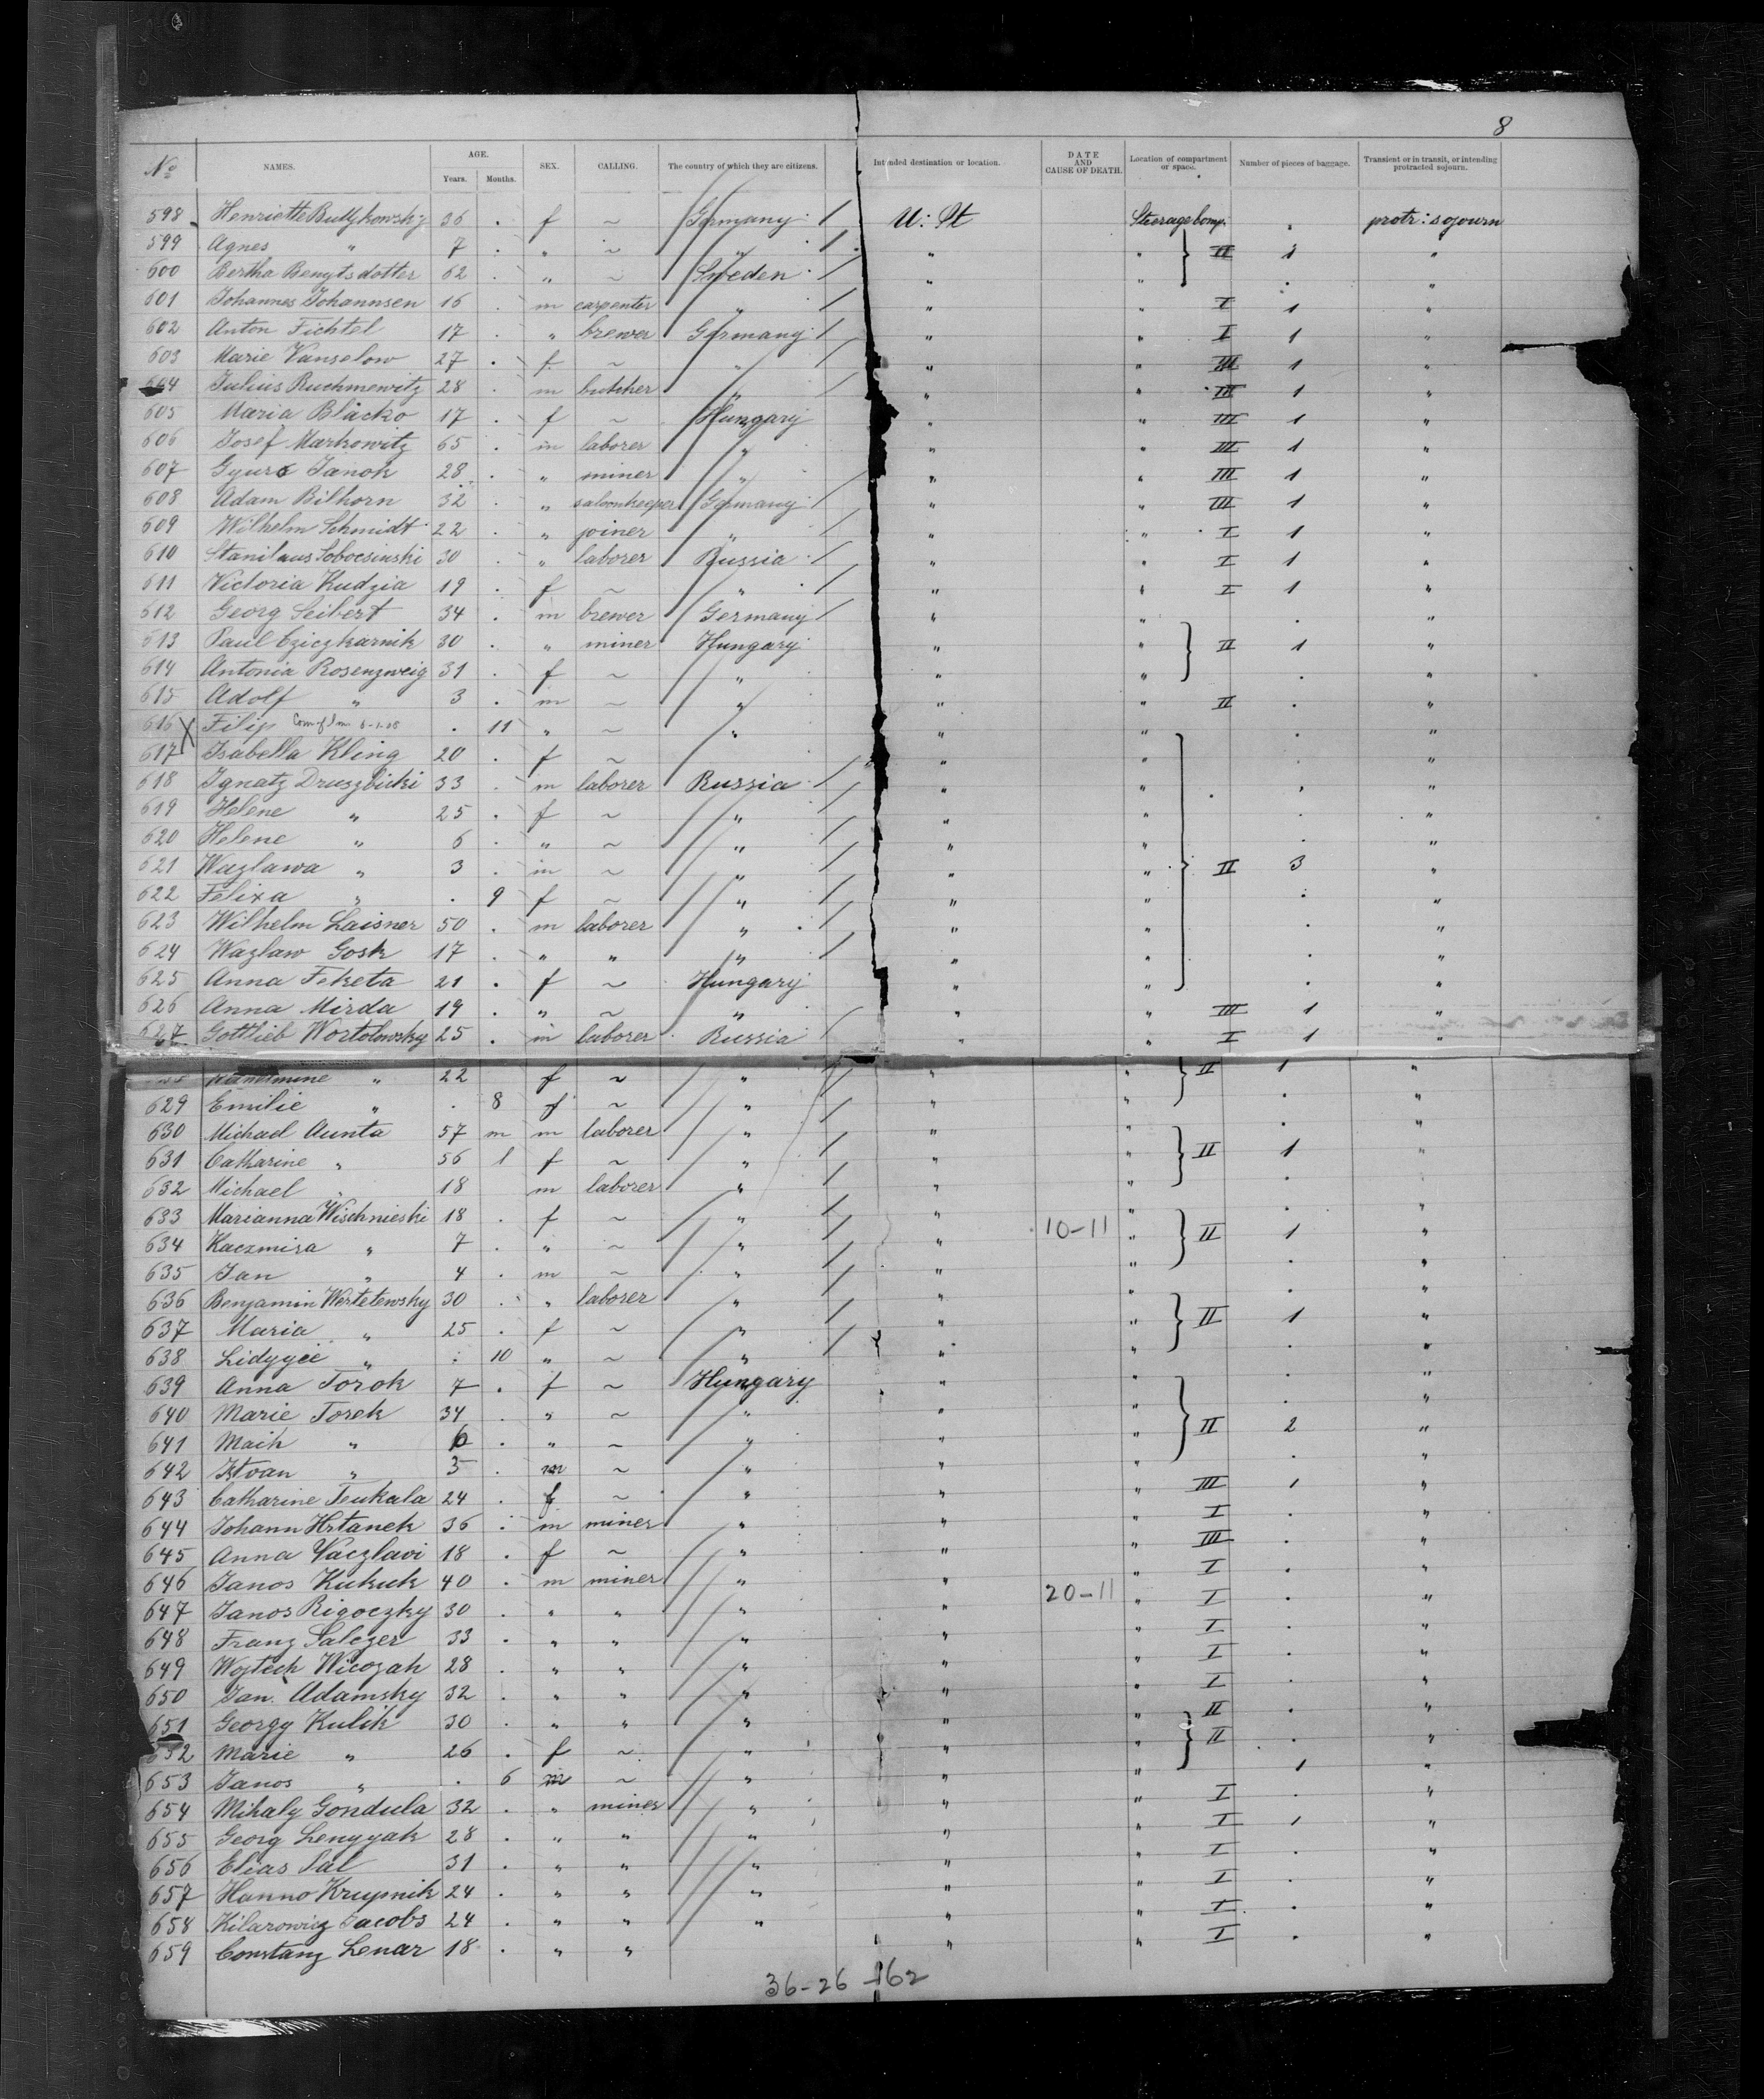 8
No NAMES. AGE. Years. Months. SEX. CALLING. The country of which they are citizens. Intended destination or location. DATE AND CAUSE OF DEATH. Location of compartment or space. Number of pieces of baggage. Transient or in transit, or intending protracted sojourn.
598 Henriette 36 . f ~ Germany / U: St Steerage Comp. . protr: sojourn
599 Agnes " 7 . " ~ " / " " II 1 "
600 Bertha Bengtsdotter 62 . " ~ Sweden / " " . "
601 Johannes Johannsen 16 . m carpenter " / " " I 1 "
602 Anton Fichtel 17 . " brewer Germany / " " I 1 "
603 Marie Vanselow 27 . f ~ " / " " III 1 "
604 Julius Ruchmewitz 28 . m butcher " / " " III 1 "
605 Maria Blacko 17 . f ~ Hungary " " III 1 "
606 Josef Markowitz 65 . m laborer " " " III 1 "
607 Gyuro Janok 28 . " miner " " " III 1 "
608 Adam Bilhorn 32 . " saloonkeeper Germany / " " III 1 "
609 Wilhelm Schmidt 22 . " joiner " / " " I 1 "
610 Stanilaus Sobocsinski 30 . " laborer Russia / " " I 1 "
611 Victoria Kudzia 19 . f ~ " / " " I 1 "
612 Georg Seibert 34 . m brewer Germany / " " . "
613 Paul Cziczkarnik 30 . " miner Hungary " " II 1 "
614 Antonia Rosenzweig 31 . f ~ " " " . "
615 Adolf " 3 . m ~ " " " II . "
616 X Filip . 11 " ~ " " " . "
617 Isabella Kling 20 . f ~ " " . "
618 Ignatz Druszbicki 33 . m laborer Russia / " . "
619 Helene " 25 . f ~ " / " " . "
620 Helene " 6 . " ~ " / " " . "
621 Wazlawa " 3 . m ~ " / " " II 3 "
622 Felixa " . 9 f ~ " / " " . "
623 Wilhelm Laisner 50 . m laborer " / " " . "
624 Wazlaw Gosk 17 . " " " / " " . "
625 Anna Feketa 21 . f ~ Hungary " " . "
626 Anna Mirda 19 . " ~ " " " III 1 "
627 Gottlieb Wortolowsky 25 . m laborer Russia / " " I 1 "
" 22 f ~ " / " " II 1 "
629 Emilie " . 8 f ~ " / " " . "
630 Michael Aunta 57 m m laborer " / " " . "
631 Catharine " 56 1 f ~ " / " " II 1 "
632 Michael " 18 m laborer " / " " . "
633 Marianna Wischnieski 18 . f ~ " / " " . "
634 Kaczmira " 7 . " ~ " / " 10-11 " II 1 "
635 Jan " 4 . m ~ " / " " . "
636 Benjamin Wertetewsky 30 . " laborer " / " " . "
637 Maria " 25 . f ~ " / " " II 1 "
638 Lidygie " . 10 " ~ " / " " . "
639 Anna Torok 7 . f ~ Hungary " " . "
640 Marie Torek 34 . " ~ " " " . "
641 Maih " 6 . " ~ " " " II 2 "
642 Istvan " 5 . m ~ " " " . "
643 Catharine Teukala 24 . f ~ " " " III 1 "
644 Johann Hrtanek 36 . m miner " " " I . "
645 Anna Vaczlavi 18 . f ~ " " " III . "
646 Janos Kukuk 40 . m miner " " " I . "
647 Janos Rigoczky 30 . " " " " 20-11 " I . "
648 Franz Salczer 33 . " " " " " I . "
649 Wojtech Wicozak 28 . " " " " " I . "
650 Jan Adamsky 32 . " " " " " I . "
651 Georgy Kulik 30 . " " " " " II . "
652 Marie " 26 . f ~ " " " II . "
653 Janos " . 6 m ~ " " " 1 "
654 Mihaly Gondula 32 . " miner " " " I . "
655 Georg Lenyyak 28 . " " " " " I 1 "
656 Elias Sal 31 . " " " " " I . "
657 Hanno Krupnik 24 . " " " " " I . "
658 Kilarowicz Jacobs 24 . " " " " " I . "
659 Constanz Lenar 18 . " " " " I . "
36-26 -162